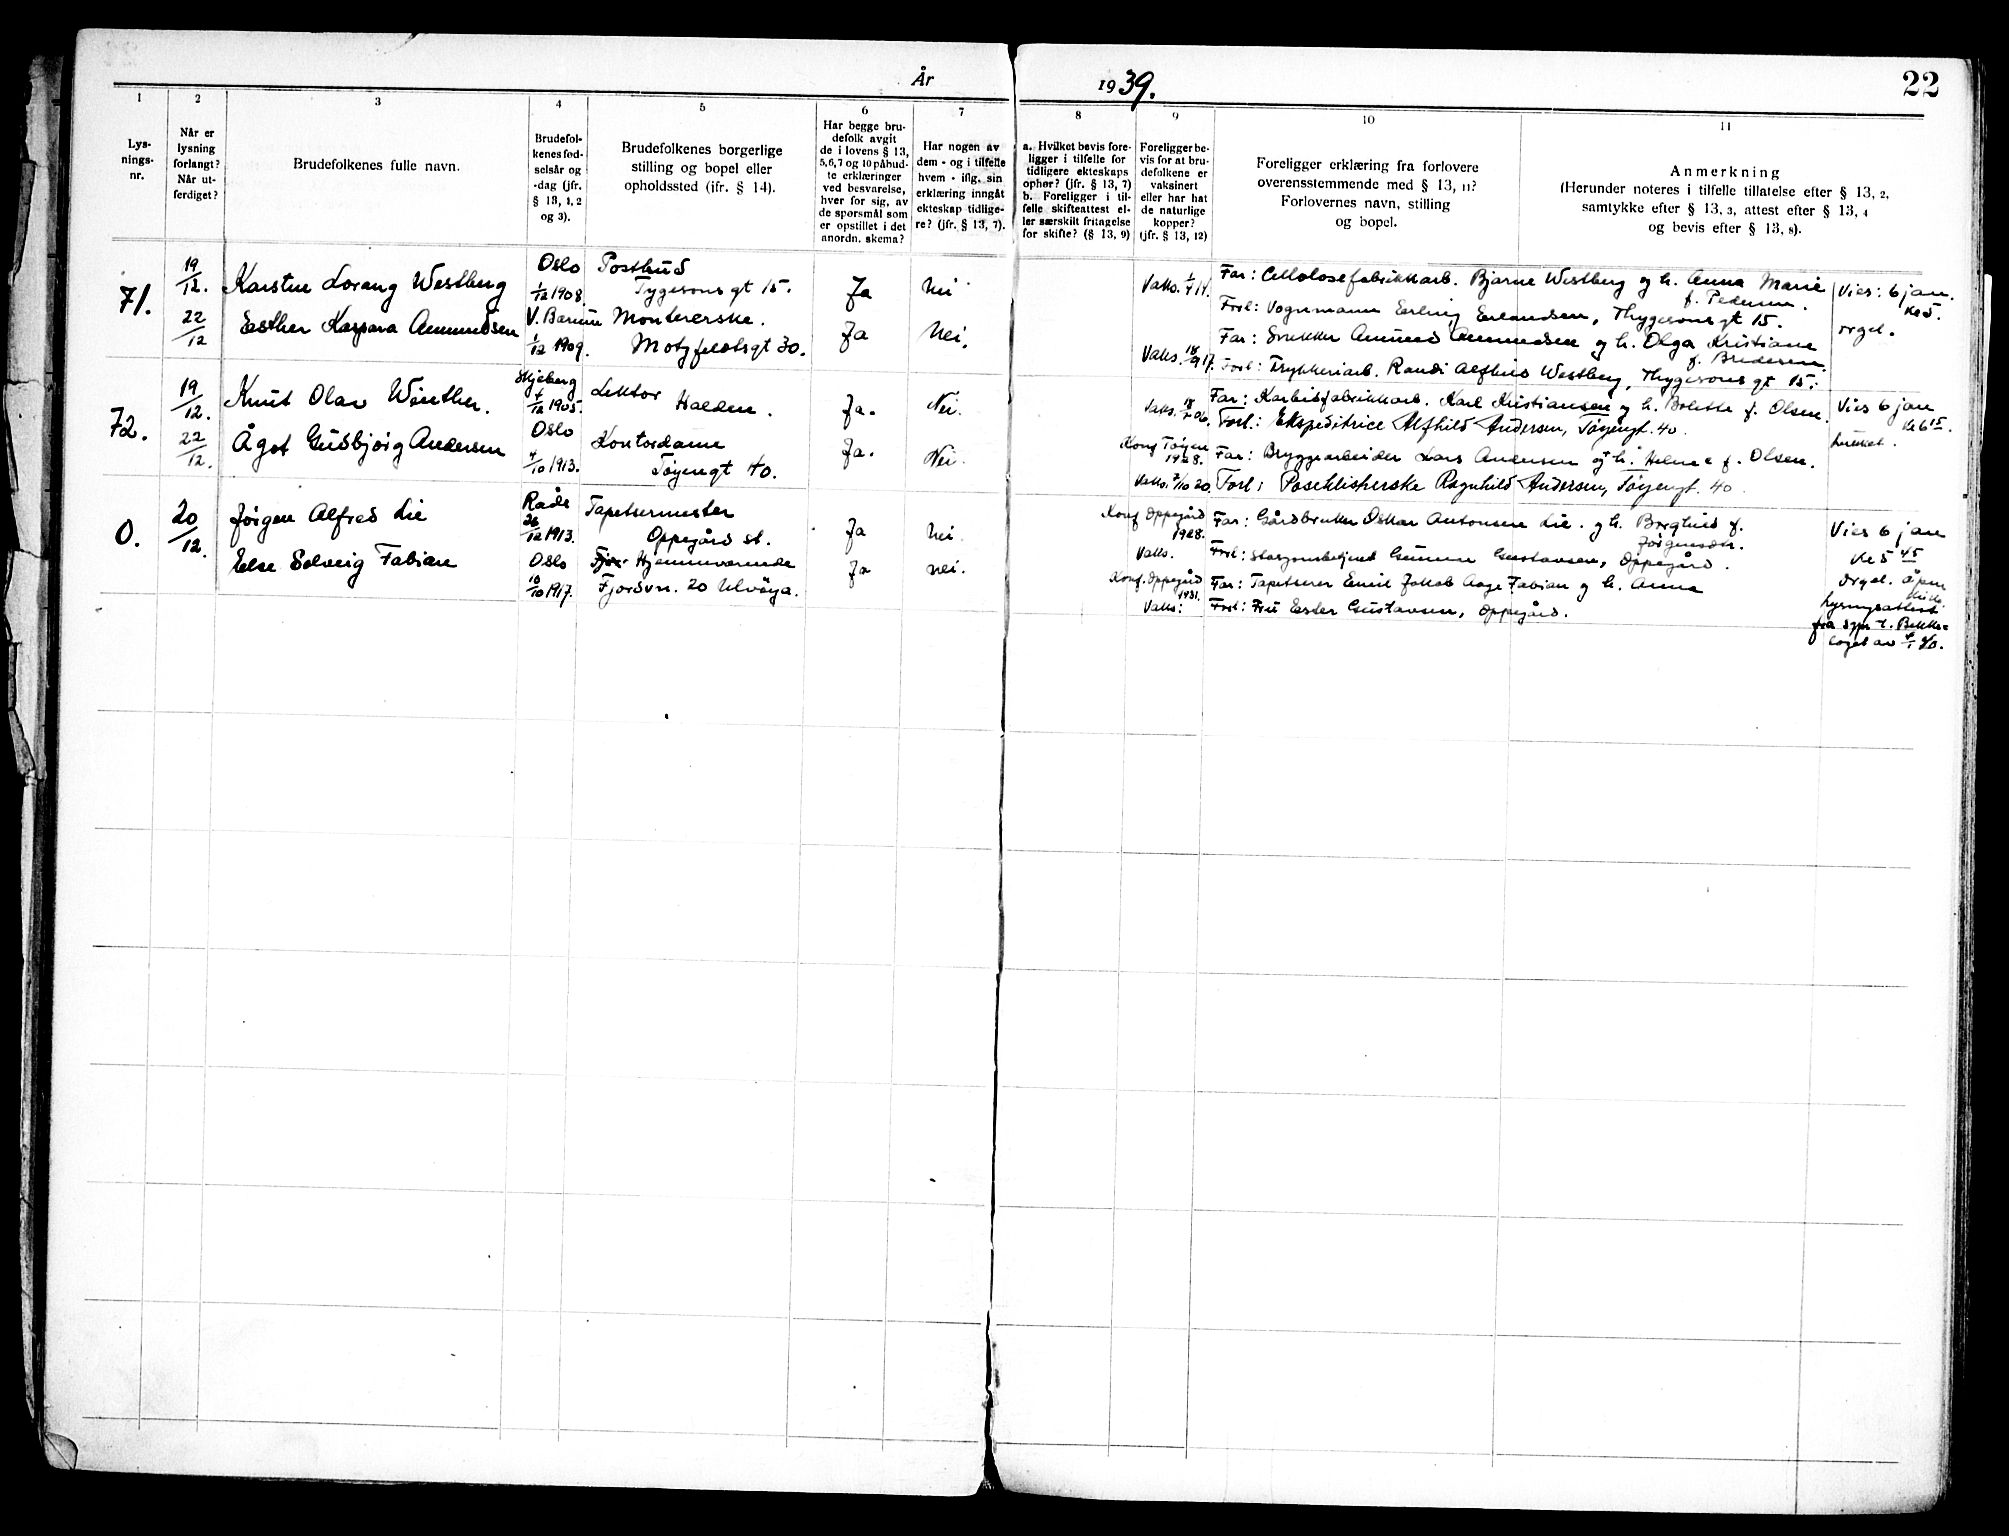 År 1939. 22
1
Lys-
nings-
nr.
2
Når er
lysning
forlangt?
Når ut-
ferdiget?
3
Brudefolkenes fulle navn.
4
Brudefol-
kenes fød-
selsår og
-dag (jfr.
§ 13, 1, 2
og 3).
5
Brudefolkenes borgerlige
stilling og bopel eller
opholdssted (jfr. § 14).
6
Har begge bru-
defolk avgit
de i lovens § 13,
5, 6, 7 og 10 påbud-
te erklæringer
ved besvarelse,
hver for sig, av
de spørsmål som
er opstillet i det
anordn. skema?
7
Har nogen av
dem - og i tilfelle
hvem - iflg. sin
erklæring inngått
ekteskap tidlige-
re? (jfr. § 13, 7).
8
a. Hvilket bevis fore-
ligger i tilfelle for
tidligere ekteskaps
ophør? (jfr. § 13, 7)
b. Foreligger i til-
felle skifteattest el-
ler særskilt fritagelse
for skifte? (§ 13, 9)
9
Foreligger be-
vis for at bru-
defolkene er
vaksinert
eller har hat
de naturlige
kopper?
(jfr. § 13, 12)
10
Foreligger erklæring fra forlovere
overensstemmende med § 13, 11?
Forlovernes navn, stilling
og bopel.
11
Anmerkning
(Herunder noteres i tilfelle tillatelse efter § 13, 2,
samtykke efter § 13, 3, attest efter § 13, 4
og bevis efter § 13, 8).
71.
19/12.
22/12
Karsten Lorang Westberg
Esther Kaspara Amundsen
Oslo
1/12 1908.
V. Bærum
1/12 1909.
Postbud
Tygesons gt 15.
Montererske.
Motzfeldtsgt 30.
Ja
Ja
Nei
Nei.
Vaks. 1/7 14.
Vaks. 18/9 17.
Far: Cellulosefabrikkarb. Bjarne Westberg og h. Anna Marie
f. Pedersen.
Forl: Vognmann Erling Erlandsen, Thygesons gt 15.
Far: Snekker Amund Amundsen og h. Olga Kristiane
f. Bredesen.
Forl: Trykkeriarb. Randi Alfhild Westberg, Thygesons gt 15.
Vies: 6 jan.
Kl 5.
orgel.
72.
19/12.
22/12.
Knut Olav Winther.
Ågot Gudbjørg Andersen
Skjeberg
4/12 1905.
Oslo
4/10 1913.
Lektor
Halden.
Kontordame
Tøyengt 40.
Ja.
Ja.
Nei.
Nei.
Vaks. 18/7 06.
Konf Tøyen
1928.
Vaks. 7/10 20.
Far: Karbidfabrikkarb. Karl Kristiansen og h. Bolette f. Olsen.
Forl: Ekspeditrice Alfhild Andersen, Tøyengt. 40.
Far: Bryggearbeider Lars Andersen og h. Helene f. Olsen.
Forl: Poseklisterske Ragnhild Andersen, Tøyengt. 40.
Vies 6 jan
Kl 6 15.
0.
20/12.
Jørgen Alfred Lie
Else Solveig Fabian
Råde
26/12 1913.
Oslo
10/10 1917.
Tapetsermester
Oppegård st.
Hjemmeværende
Fjordvn. 20 Ulvøya.
Ja
Ja
Nei.
Nei.
Konf Oppegård
1928.
Vaks.
Konf. Oppegård
1931.
Vaks:
Far: Gårdbruker Oskar Antonsen Lie. og h. Borghild f.
Jørgensdtr.
Forl: stasjonsbetjent Gunnar Gustavsen, Oppegård.
Far: Tapetserer Emil Jakob Aage Fabian og h. Anna
Forl: Fru Ester Gustavsen, Oppegård.
Vies 6 jan
Kl 5 45
Orgel. åpen
kirke.
Lysningsattest
fra spr. t. Bekke-
laget av 4/1 40.